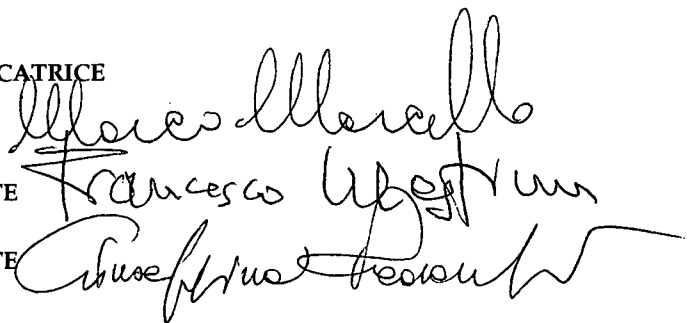 CATRICE
Marco Marcello
TE Francesco
TE Giuseppina